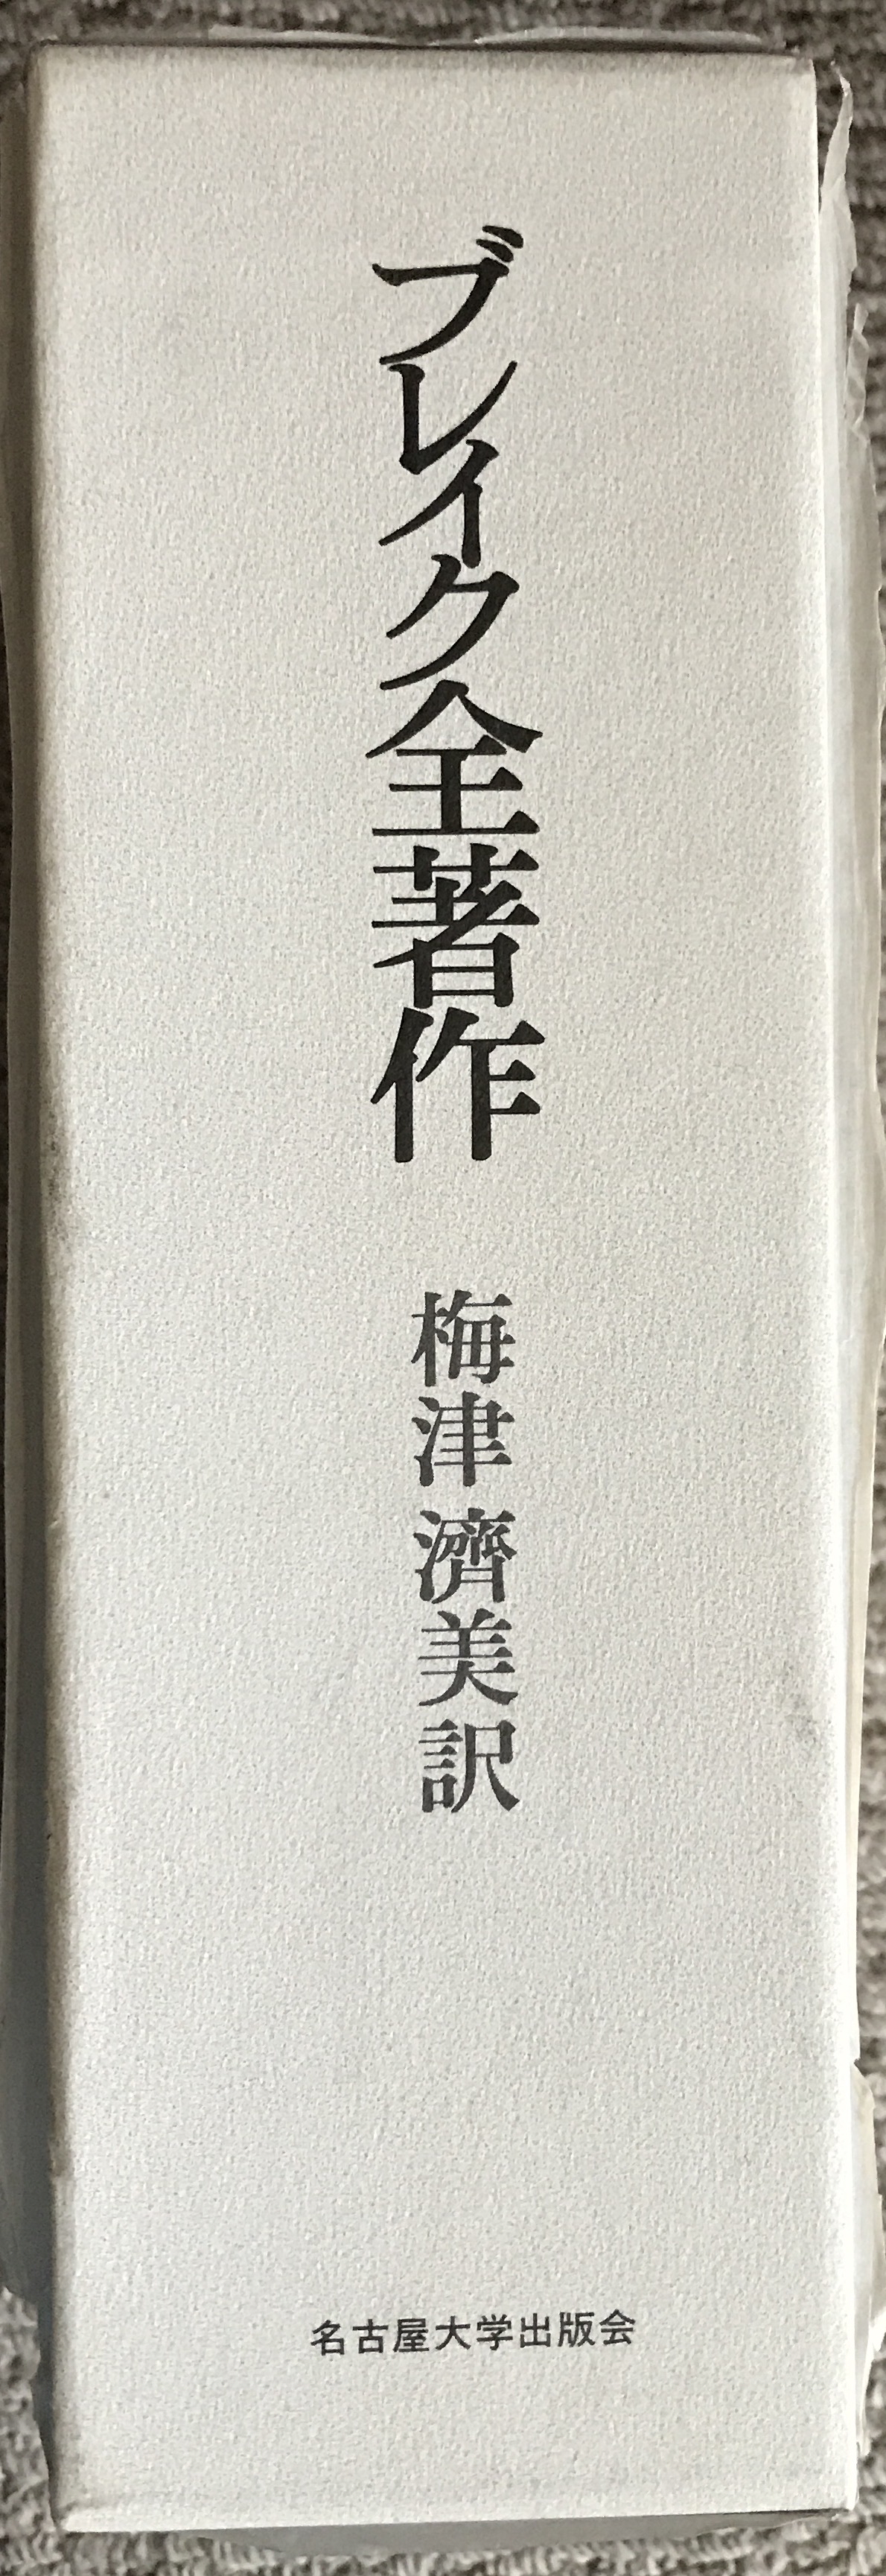 ブレイク全著作
梅津濟美訳
名古屋大学出版会